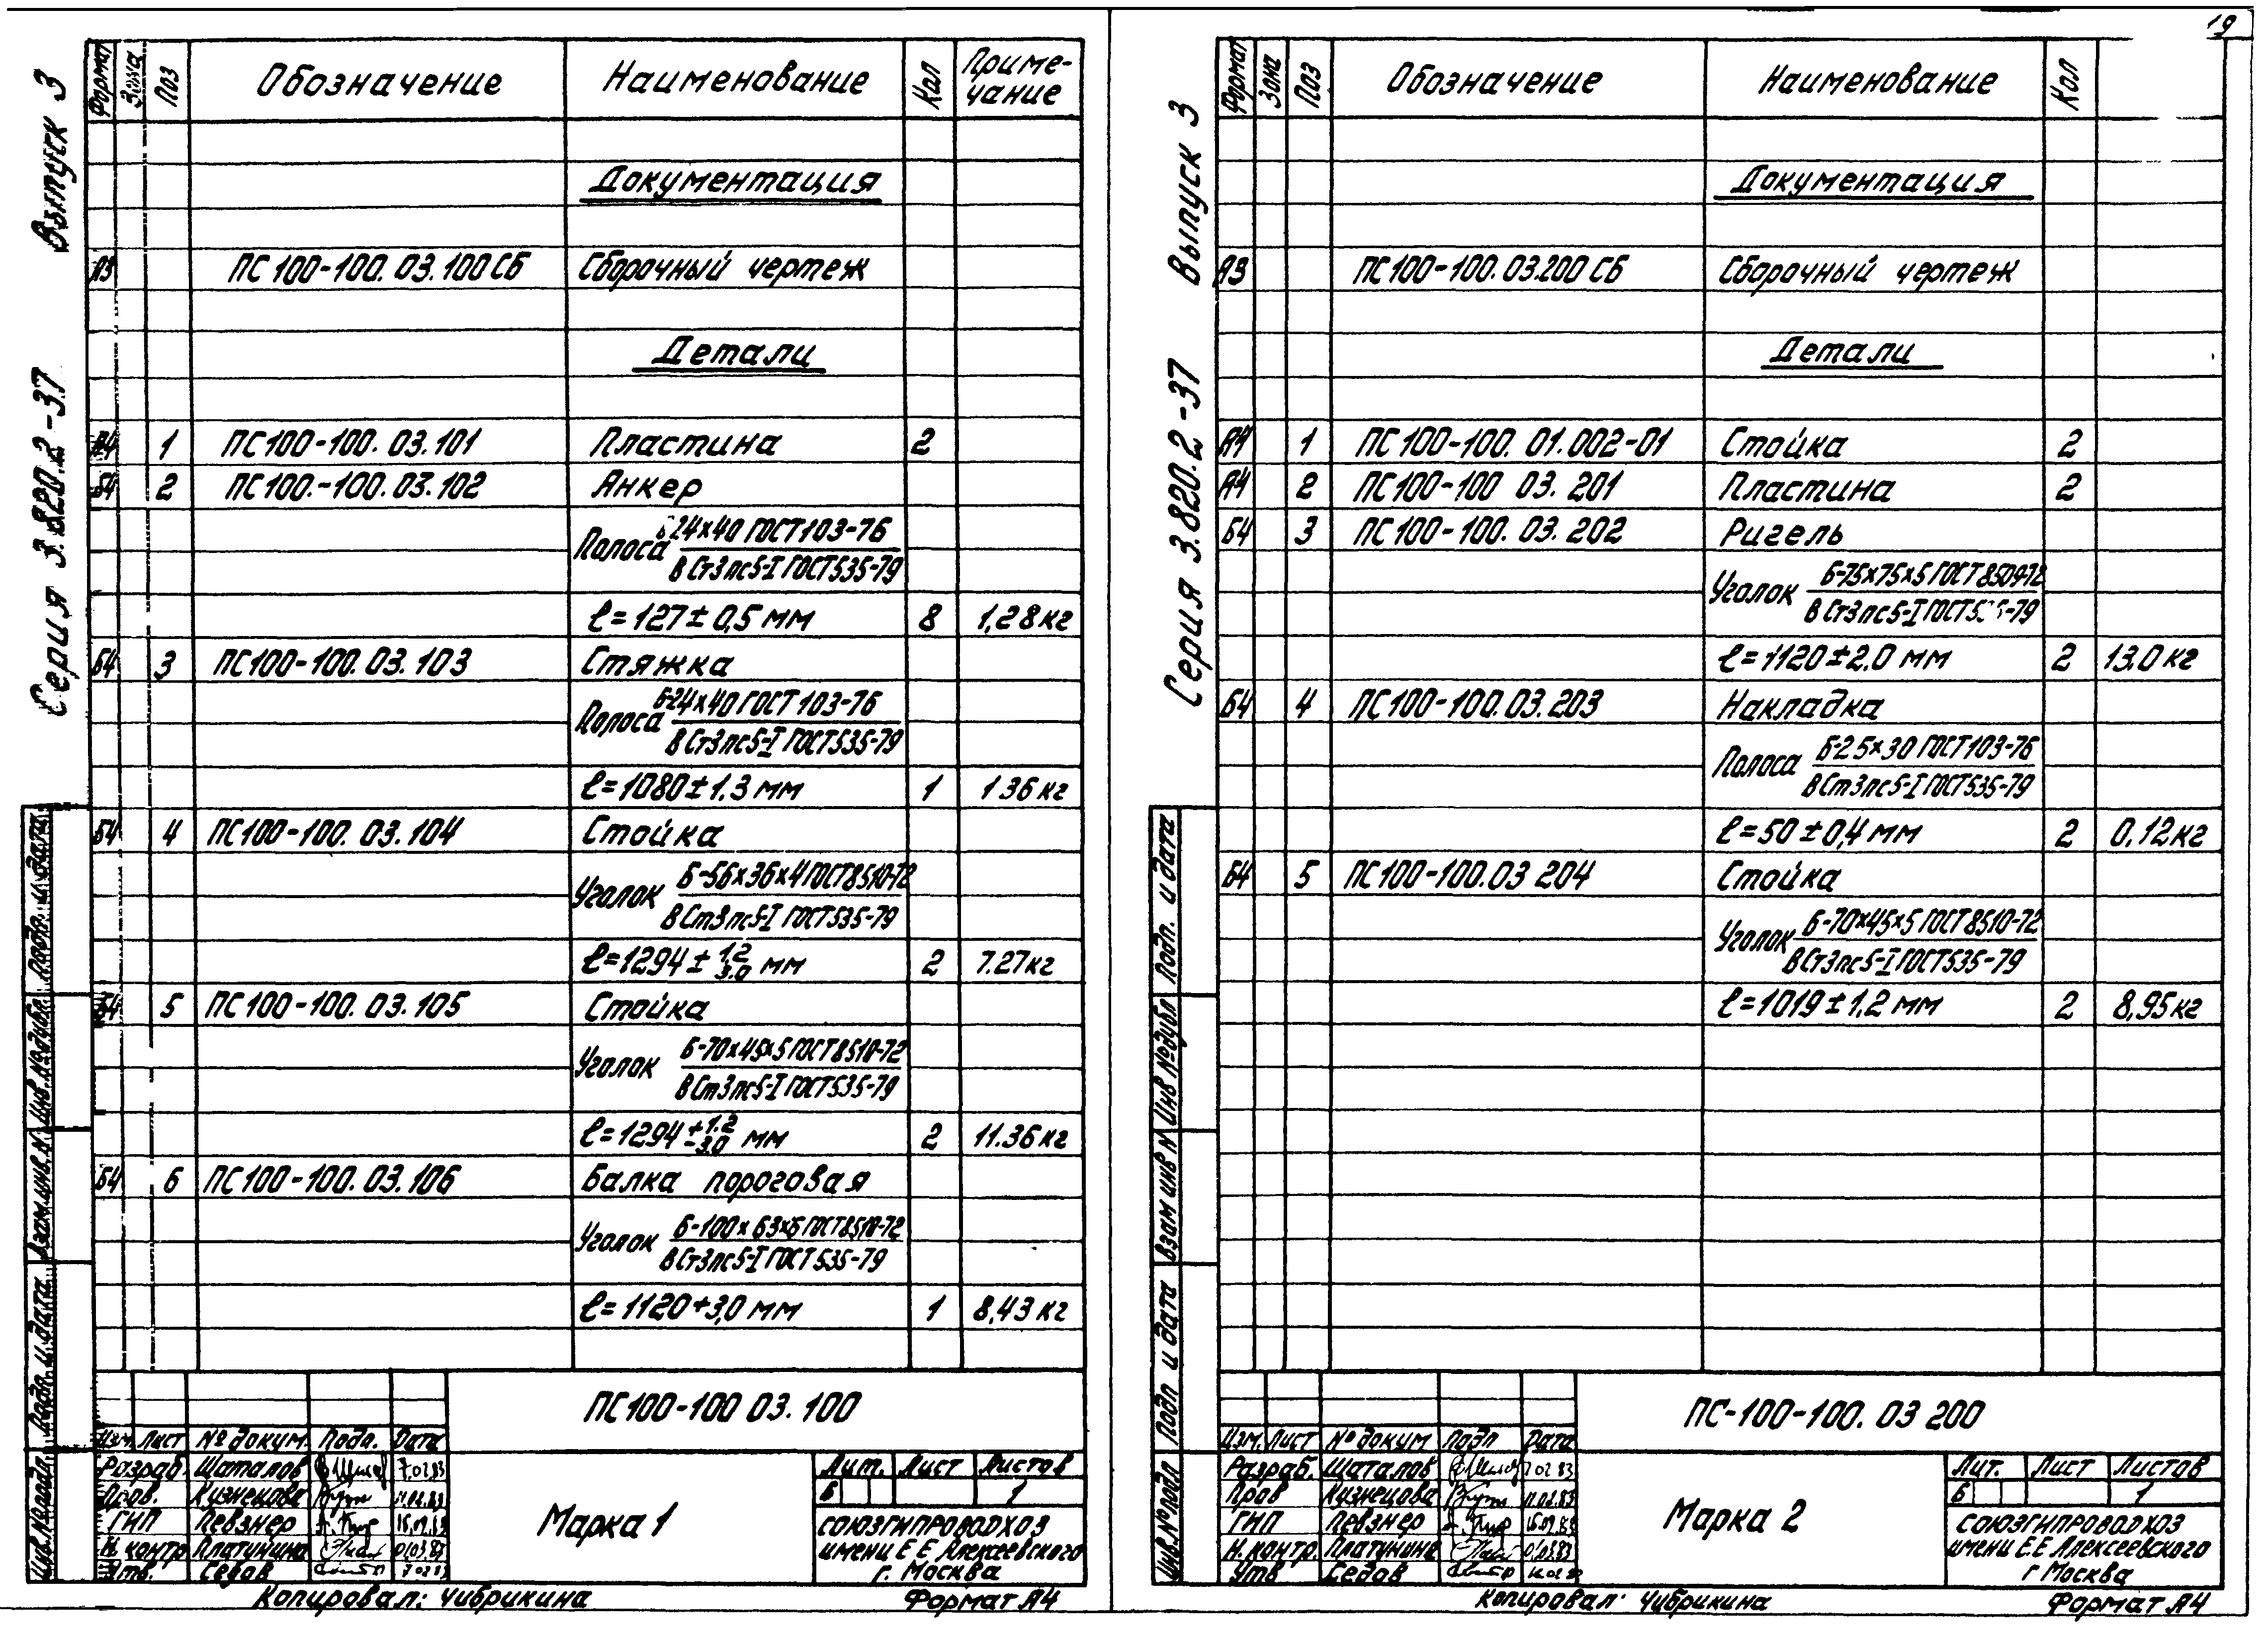 19
Серия 3.820.2-37 Выпуск 3
Формат Зона Поз Обозначение Наименование Кол Приме-
чание
Документация
А3 ПС100-100.03.100СБ Сборочный чертеж
Детали
1 ПС100-100.03.101 Пластина 2
Б4 2 ПС100.-100.03.102 Анкер
Полоса 24х40 ГОСТ103-76
ВСт3пс5-I ГОСТ535-79
ℓ=127±0,5 мм 8 1,28кг
Б4 3 ПС100-100.03.103 Стяжка
Полоса Б-24х40 ГОСТ 103-76
ВСт3пс5-I ГОСТ535-79
ℓ=1080±1.3 мм 1 1 36 кг
Б4 4 ПС100-100.03.104 Стойка
Уголок Б-56х36х4 ГОСТ8510-72
ВСт3пс5-I ГОСТ535-79
ℓ=1294± 1,2 3.0 мм 2 7.27кг
Б4 5 ПС100-100.03.105 Стойка
Уголок Б-70х45х5 ГОСТ8510-72
ВСт3пс5-I ГОСТ535-79
ℓ=1294 +1.2 -3.0 мм 2 11.36кг
Б4 6 ПС100-100.03.106 Балка пороговая
Уголок Б-100х63х6 ГОСТ8510-72
ВСт3пс5-I ГОСТ535-79
ℓ=1120+3,0 мм 1 8,43кг
Подп. и дата
Инв.№дубл
Взам.инв.№
Подп. и дата
Инв.№подл
ПС100-100 03.100
Изм. Лист № докум. Подп. Дата
Разраб. Шаталов 7.02.83
Пров. Кузнецова 11.02.83
ГИП Певзнер
Н. контр Платунина 01.03.83
Утв. Седов
Марка 1
Лит. Лист Листов
Б 1
СОЮЗГИПРОВОДХОЗ
имени Е Е Алексеевского
г. Москва
Копировал: Чибрикина Формат А4
Серия 3.820.2-37 Выпуск 3
Формат Зона Поз Обозначение Наименование Кол
Документация
А3 ПС100-100.03.200 СБ Сборочный чертеж
Детали
А4 1 ПС100-100.01.002-01 Стойка 2
А4 2 ПС100-100 03.201 Пластина 2
Б4 3 ПС100-100.03.202 Ригель
Уголок Б-75х75х5 ГОСТ8509-72
ВСт3пс5-I ГОСТ535-79
ℓ=1120±2.0 мм 2 13.0кг
Б4 4 ПС100-100.03.203 Накладка
Полоса Б-2.5х30 ГОСТ103-76
ВСт3пс5-I ГОСТ535-79
ℓ=50±0,4 мм 2 0,12кг
Б4 5 ПС100-100.03 204 Стойка
Уголок Б-70х45х5 ГОСТ8510-72
ВСт3пс5-I ГОСТ535-79
ℓ=1019±1,2 мм 2 8,95кг
Подп. и дата
Инв №дубл
Взам инв №
Подп и дата
Инв.№подл
ПС-100-100.03 200
Изм. Лист № докум Подп Дата
Разраб. Шаталов 7.02 83
Пров Кузнецова 11.02.83
ГИП Певзнер
Н. контр. Платунина 01.03.83
Утв Седов
Марка 2
Лит. Лист Листов
Б 1
СОЮЗГИПРОВОДХОЗ
имени Е.Е Алексеевского
г Москва
Копировал: Чибрикина Формат А4